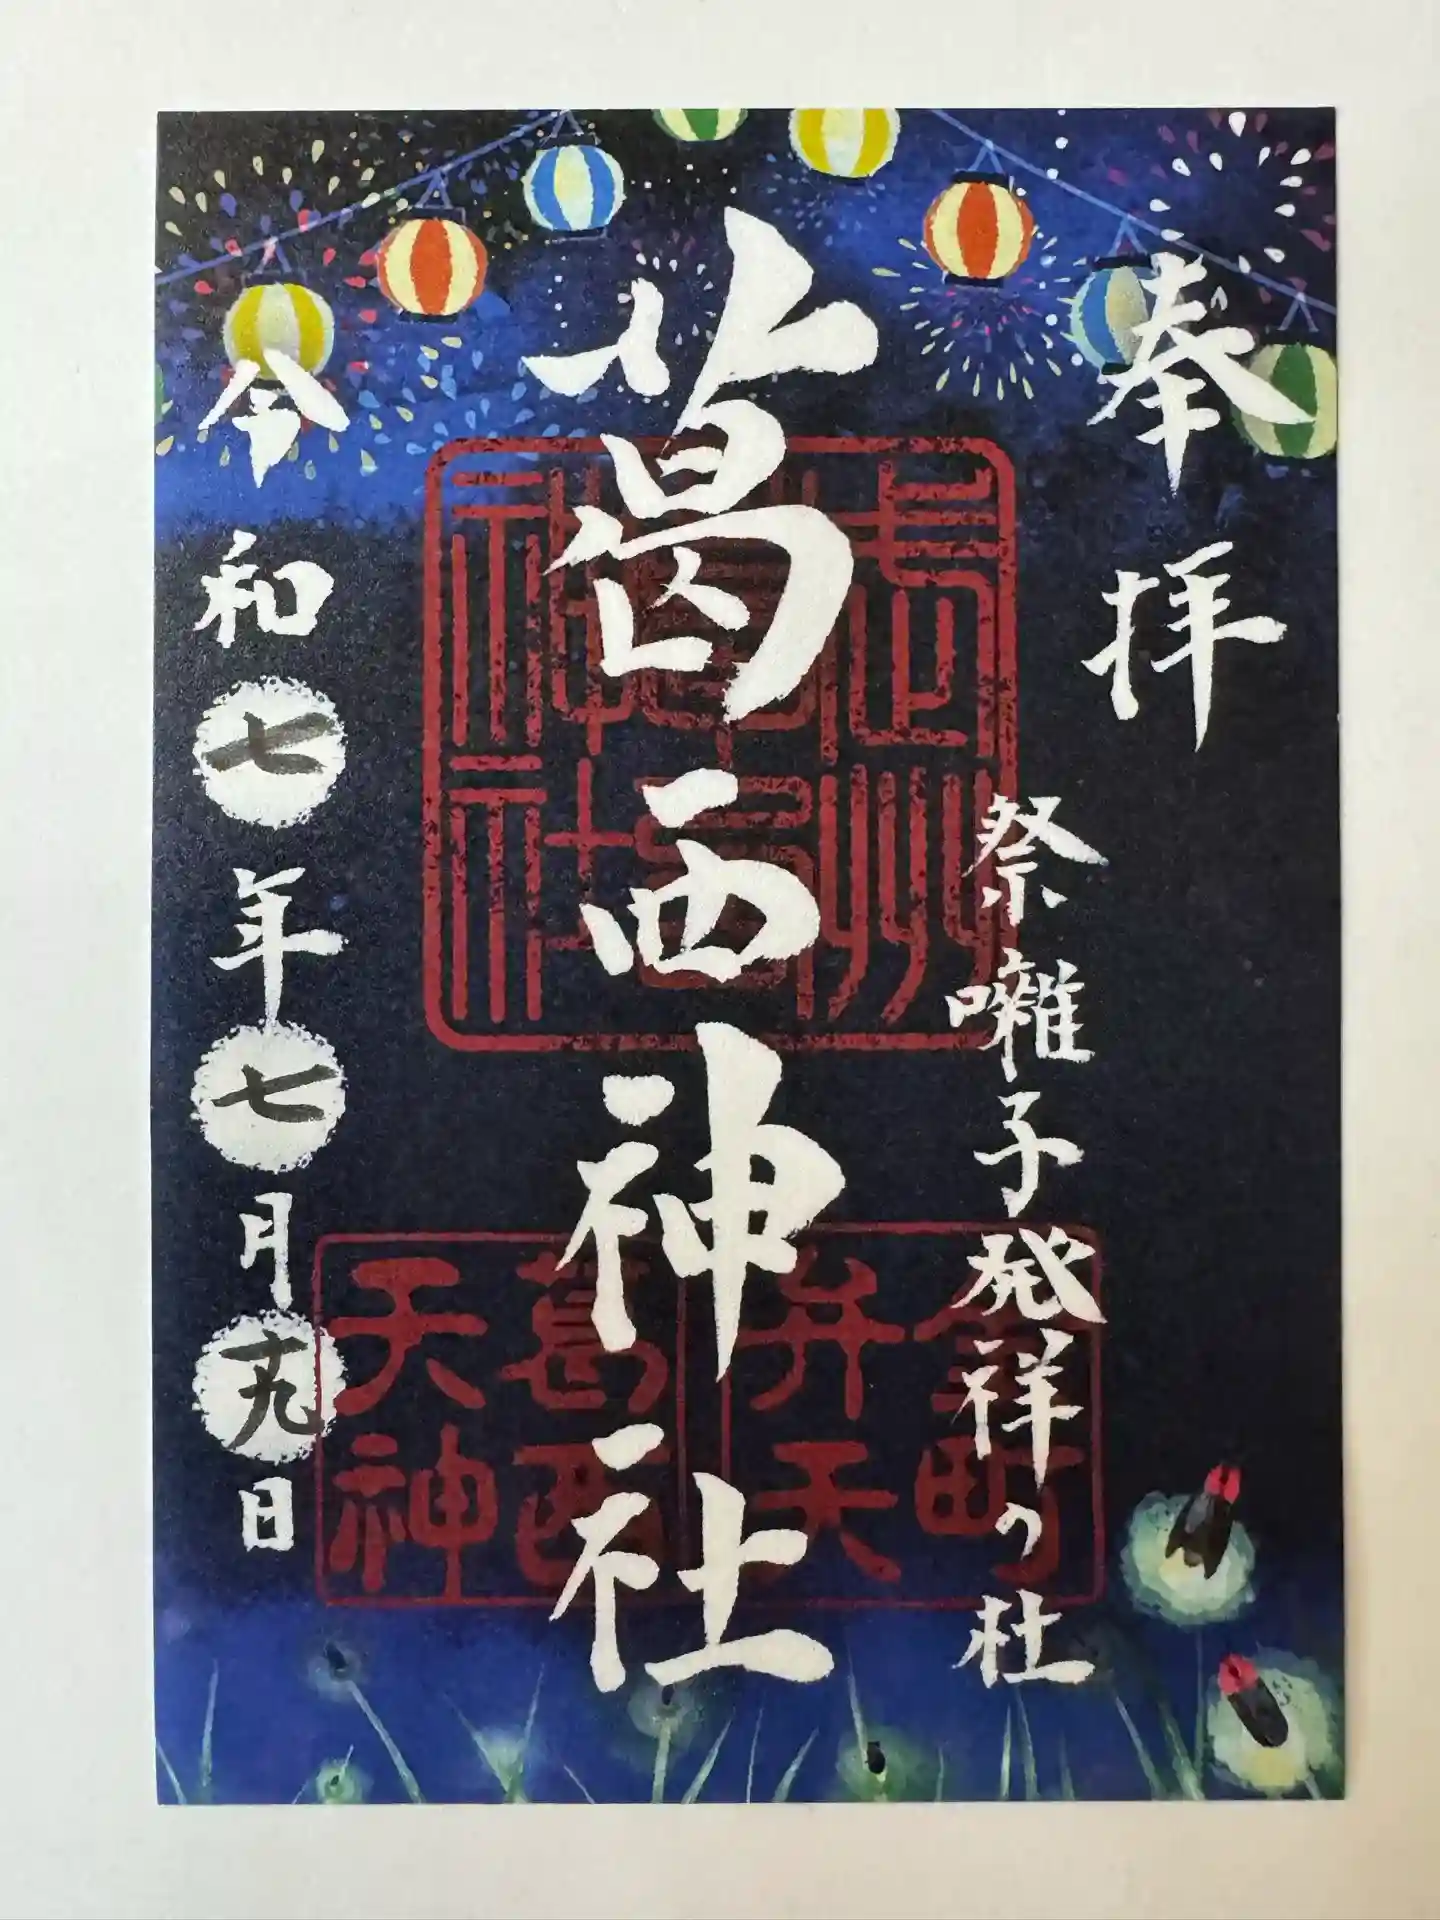 奉拝
祭囃子発祥の社
葛西神社
令和七年七月十九日
武州
葛西
神社
金町
弁天
葛西
天神